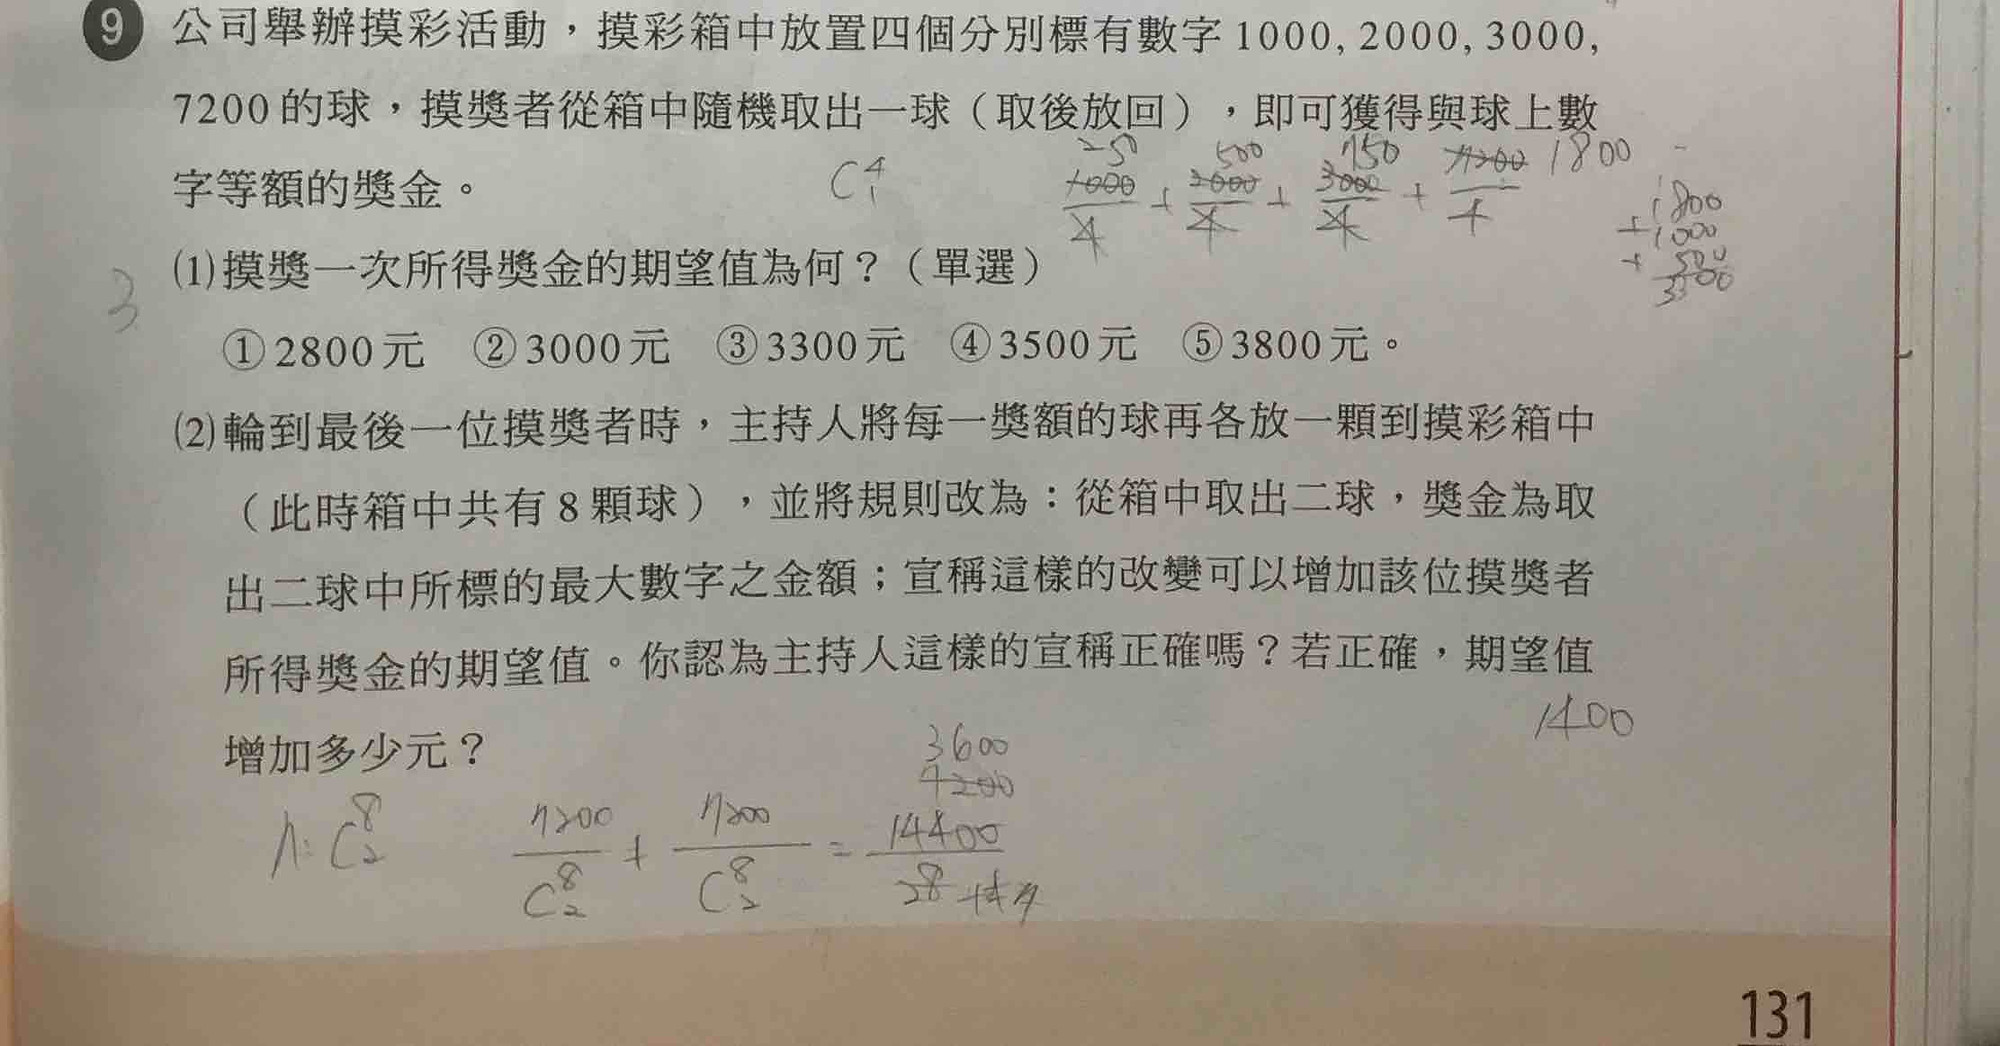 9 公司舉辦摸彩活動，摸彩箱中放置四個分別標有數字1000, 2000, 3000,
7200的球，摸獎者從箱中隨機取出一球（取後放回），即可獲得與球上數
字等額的獎金。
C⁴₁
250 500 750 1800
1000/4 + 2000/4 + 3000/4 + 7200/4
1800
+1000
+ 500
3300
3
⑴摸獎一次所得獎金的期望值為何？（單選）
①2800元 ②3000元 ③3300元 ④3500元 ⑤3800元。
⑵輪到最後一位摸獎者時，主持人將每一獎額的球再各放一顆到摸彩箱中
（此時箱中共有8顆球），並將規則改為：從箱中取出二球，獎金為取
出二球中所標的最大數字之金額；宣稱這樣的改變可以增加該位摸獎者
所得獎金的期望值。你認為主持人這樣的宣稱正確嗎？若正確，期望值
增加多少元？
1400
3600
7200
n: C⁸₂ 7200/C⁸₂ + 7200/C⁸₂ = 14400/28 14 7
131